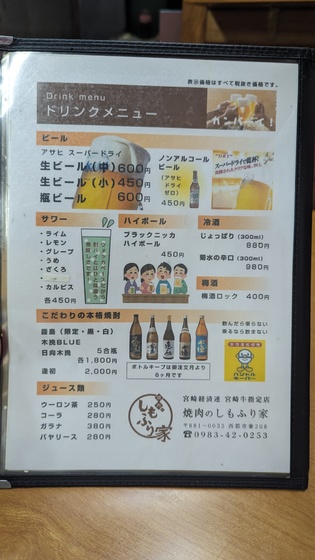 表示価格はすべて税抜き価格です。
Drink menu
ドリンクメニュー
カンパーイ!
ビール
アサヒ スーパードライ
生ビール(中)600円
生ビール(小)450円
瓶ビール 600円
ノンアルコール
ビール
(アサヒ
ドライ
ゼロ)
450円
サワー
・ライム
・レモン
・グレープ
・うめ
・ざくろ
・カルピス
各450円
ハイボール
ブラックニッカ
ハイボール
450円
冷酒
じょっぱり (300ml)
880円
菊水の辛口 (300ml)
980円
梅酒
梅酒ロック 400円
こだわりの本格焼酎
霧島(限定・黒・白)
木挽BLUE
日向木挽
5合瓶
各1,800円
2,000円
ボトルキープは御注文月より
6ヶ月です
飲んだら乗らない
乗るなら飲まない
ハンドル
キーパー
ジュース類
ウーロン茶 250円
コーラ 280円
ガラナ 380円
バヤリース 280円
しもふり家
宮崎経済連 宮崎牛指定店
焼肉のしもふり家
〒881-0033 西都市妻208
☎0983-42-0253